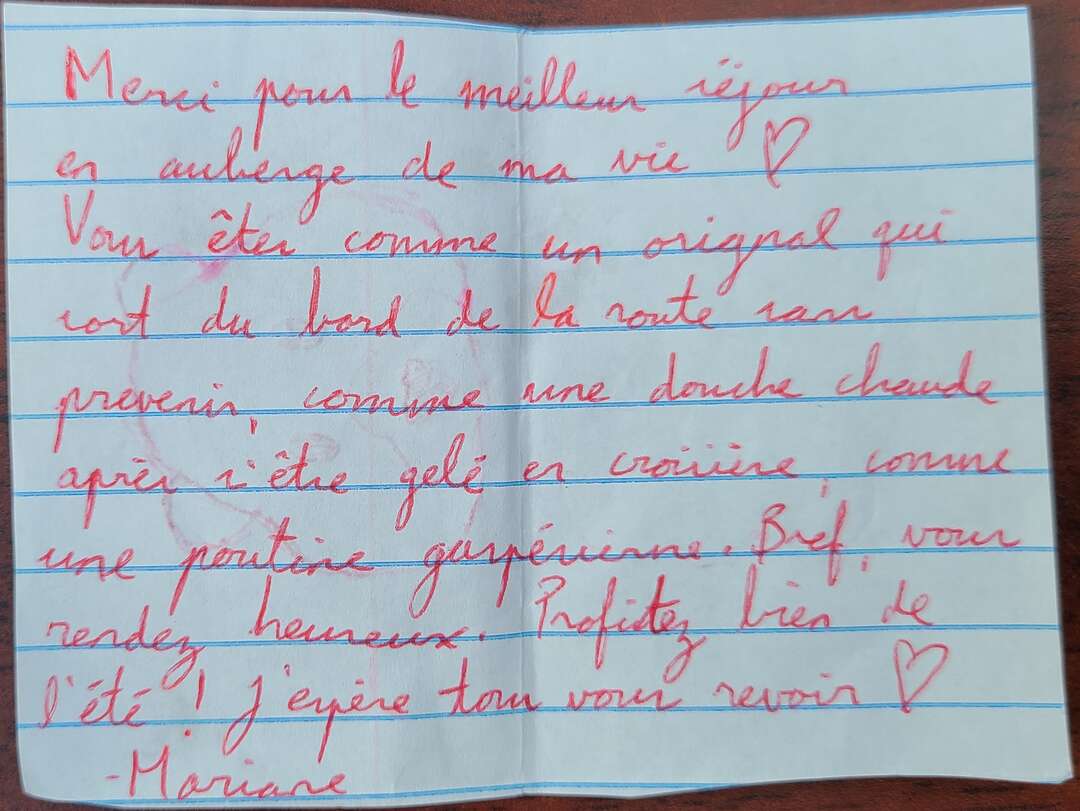 Merci pour le meilleur séjour
en auberge de ma vie ♡
Vous êtes comme un orignal qui
sort du bord de la route sans
prevenir, comme une douche chaude
après s'être gelé en croisière, comme
une poutine gaspésienne. Bref, vous
rendez heureux. Profitez bien de
l'été ! J'espère tous vous revoir ♡
-Mariane